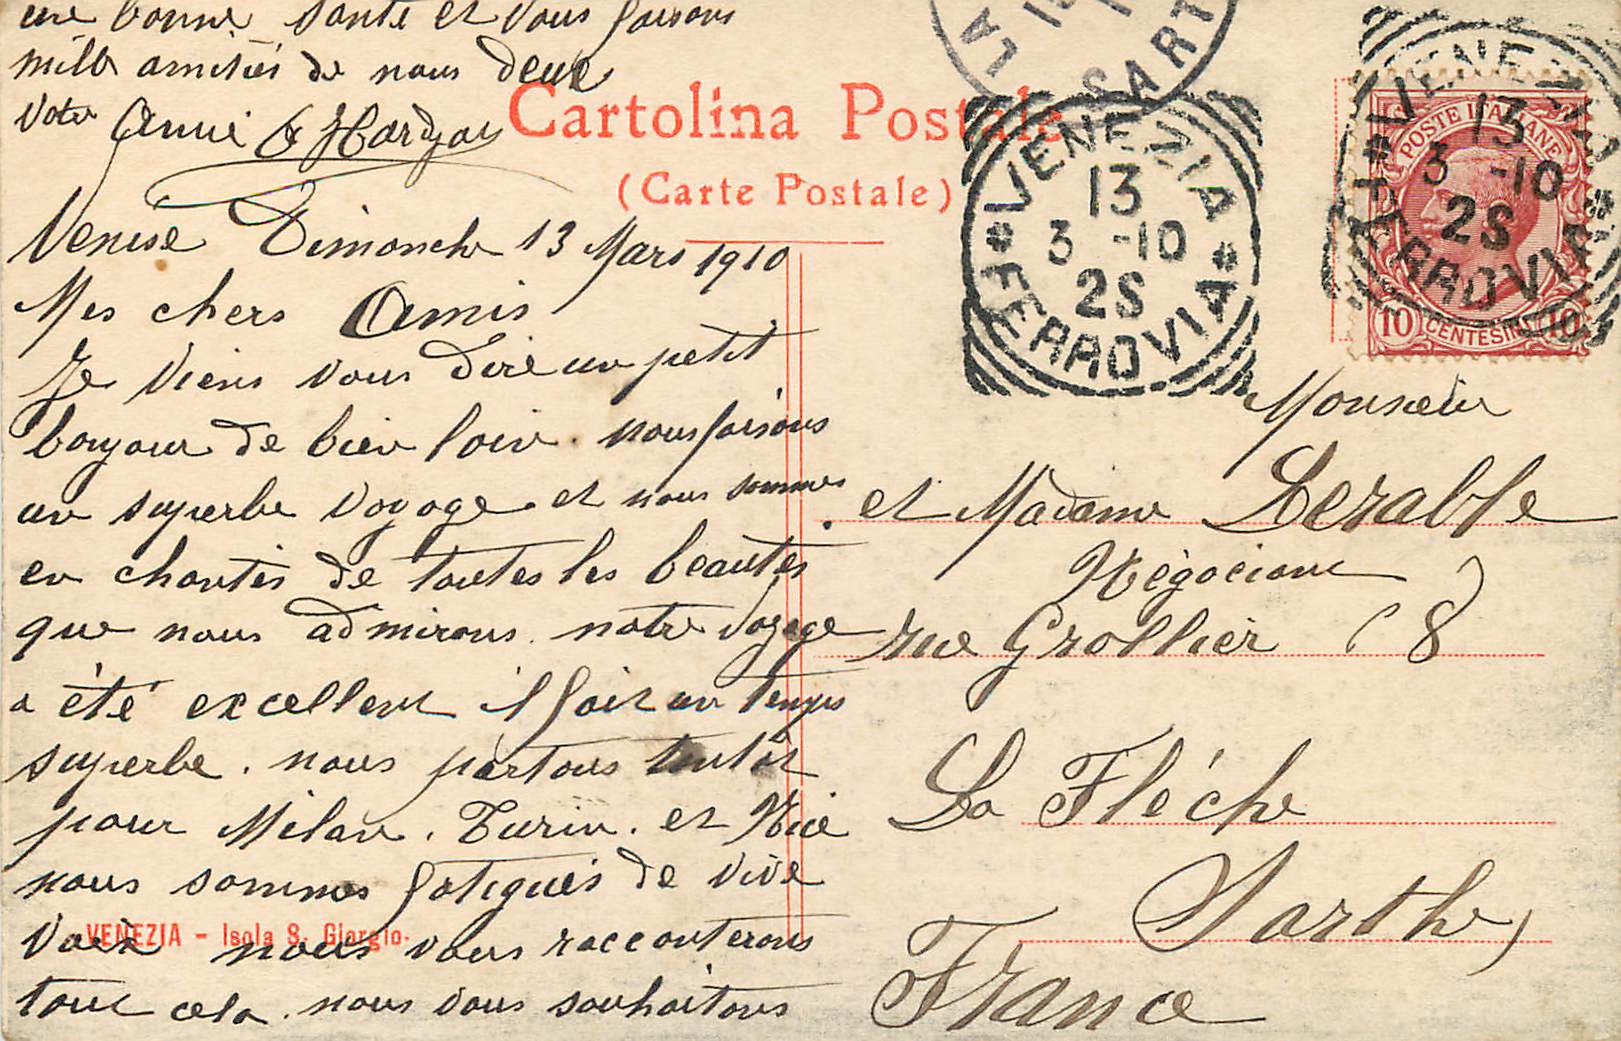 une bonne santé et vous faisons
mille amitiés de nous deux
votre Annie & Hardyau
Cartolina Postale
(Carte Postale)
LA
SART
VENEZIA
13
3 -10
2S
* FERROVIA *
VENEZIA
13
3 -10
2S
* FERROVIA
POSTE ITALIANE
10 CENTESIMI 10
Venise Dimanche 13 Mars 1910
Mes chers Amis
Je viens vous dire un petit
bonjour de bien loin. nous faisons
un superbe voyage. et nous sommes
en chantés de toutes les beautés
que nous admirons. notre voyage
a été excellent il fait un temps
superbe. nous partons tantôt
pour Milan. Turin. et Nice
nous sommes fatigués de vive
voix nous vous racconterons
tout cela. nous vous souhaitons
VENEZIA - Isola S. Giorgio.
Monsieur
et Madame Lerable
Négociant
rue Grollier 8
La Fléche
Sarthe
France